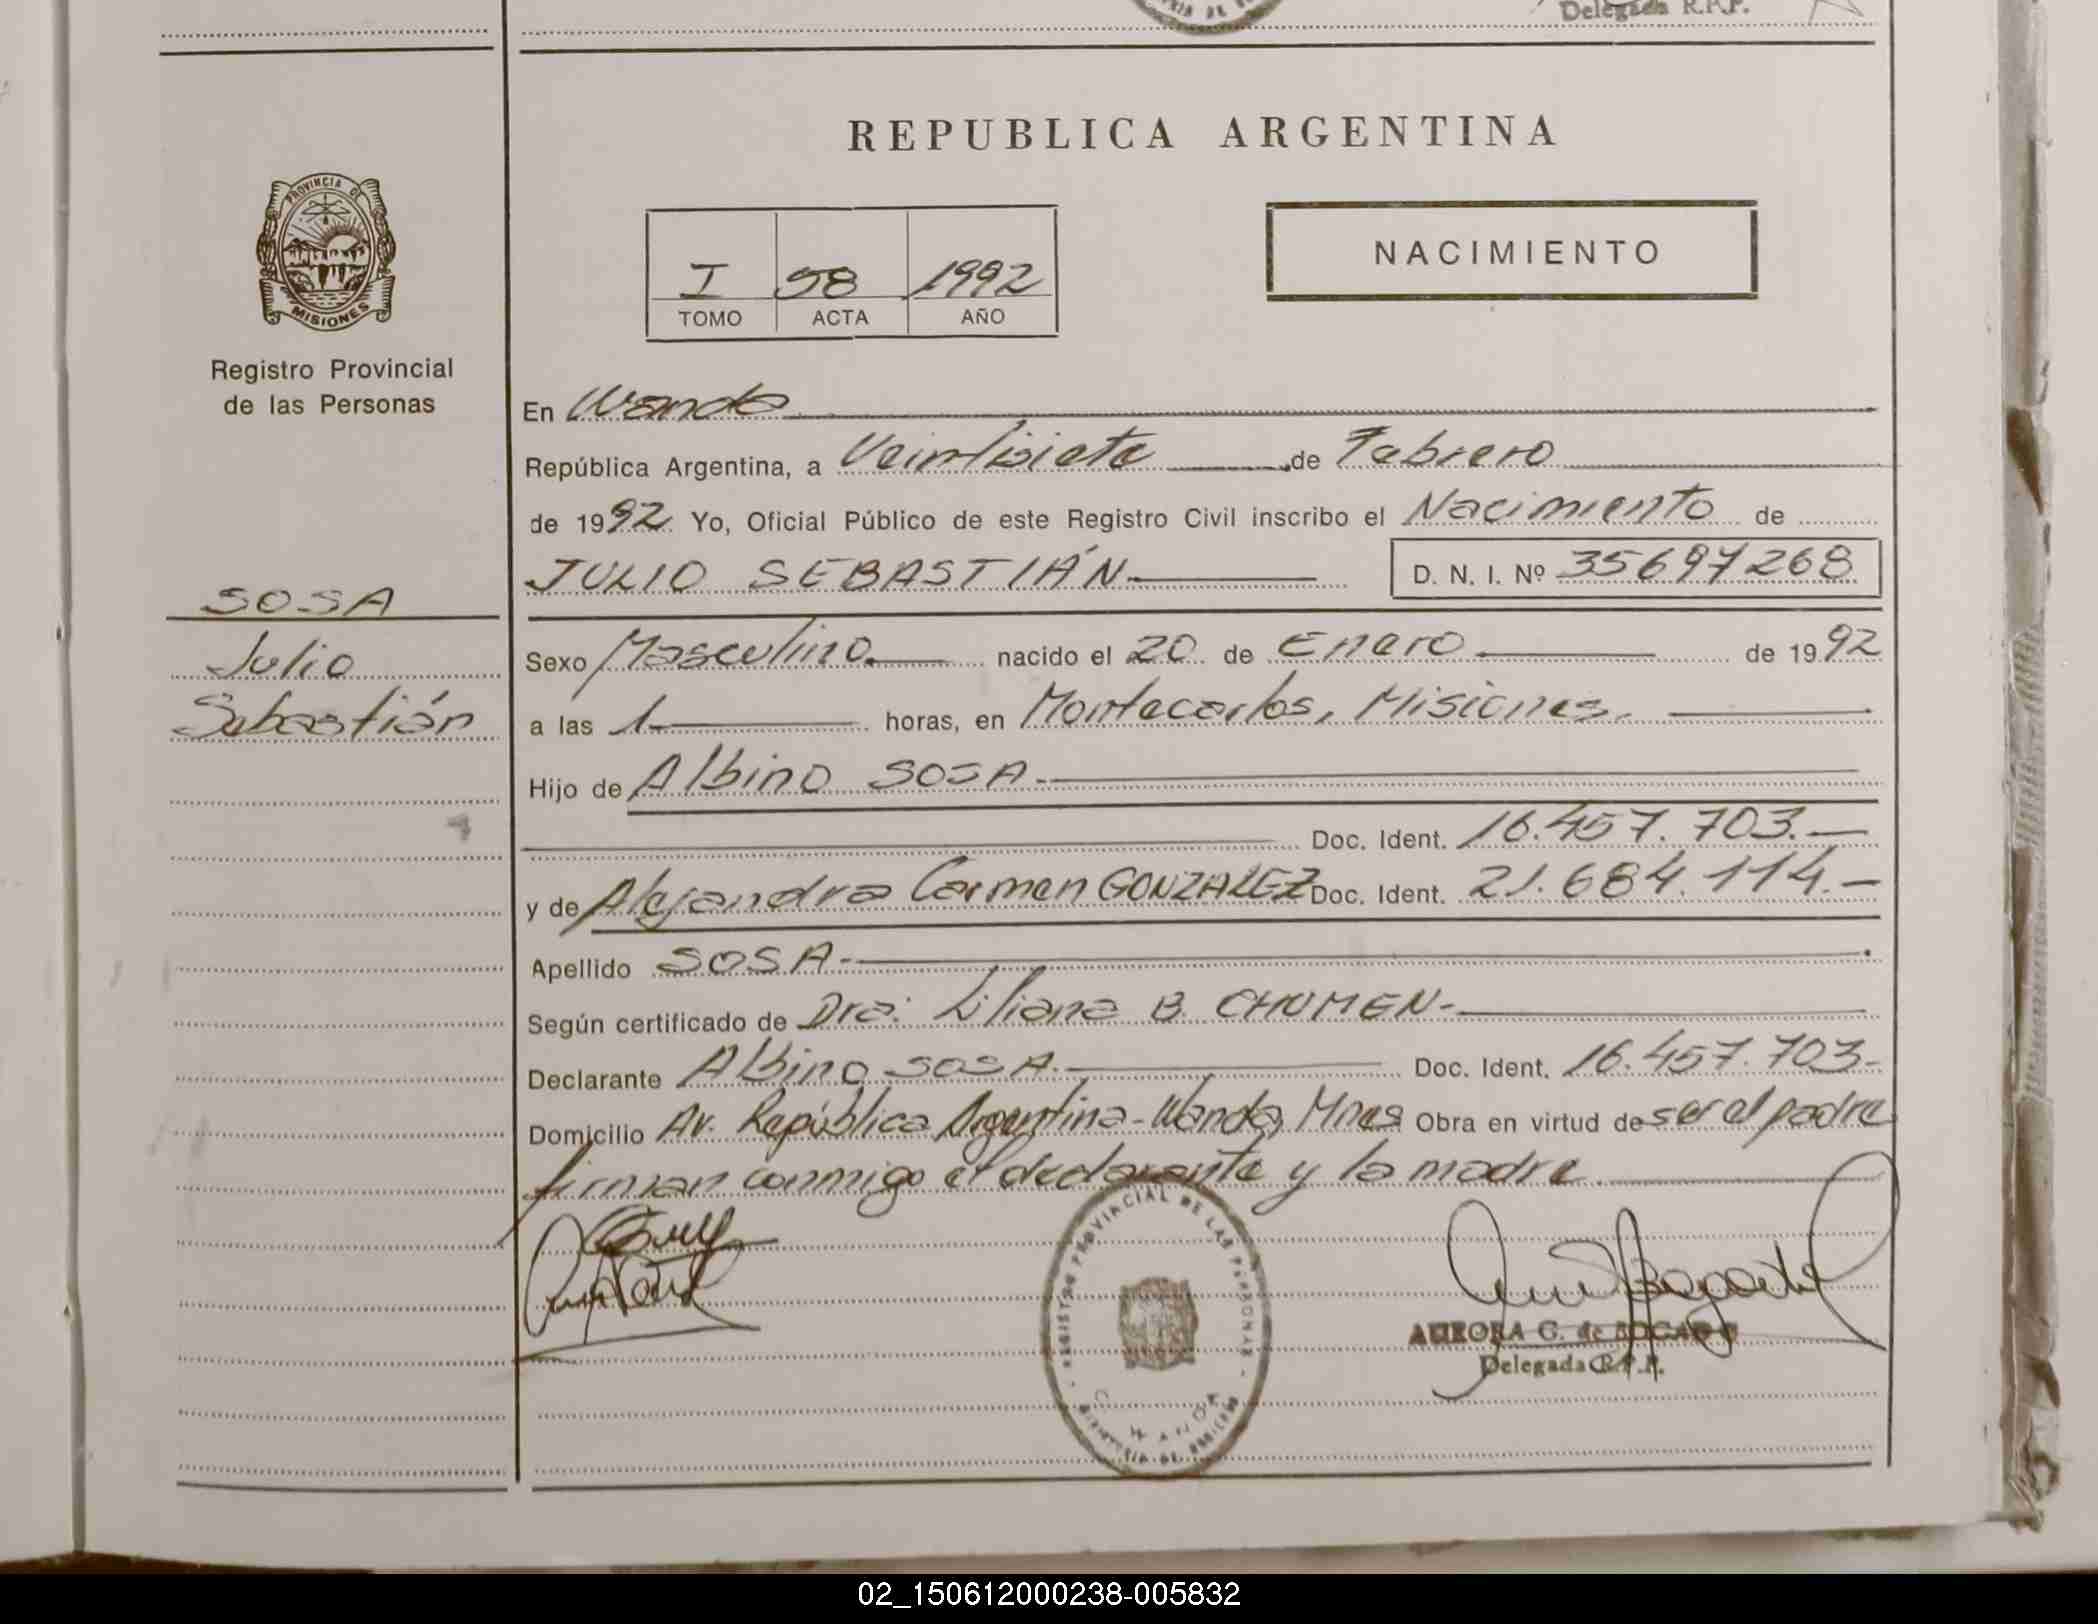 Delegada R.P.P.
REPUBLICA ARGENTINA
PROVINCIA DE
MISIONES
Registro Provincial
de las Personas
I 58 1992
TOMO ACTA AÑO
NACIMIENTO
En Wanda
República Argentina, a Veintisiete de Febrero
de 1992 Yo, Oficial Público de este Registro Civil inscribo el Nacimiento de
JULIO SEBASTIÁN D. N. I. Nº 35697268
SOSA
Julio
Sebastián
Sexo Masculino. nacido el 20 de Enero de 1992
a las 1 horas, en Montecarlos, Misiones.
Hijo de Albino SOSA.
Doc. Ident. 16.457.703.
y de Alejandra Carmen GONZALEZ Doc. Ident. 21.684.114.
Apellido SOSA.
Según certificado de Dra: Liliana B. CHUMEN-
Declarante Albino SOSA. Doc. Ident. 16.457.703-
Domicilio Av. República Argentina-Wanda, Mnes Obra en virtud de ser el padre
firman conmigo el declarante y la madre
REGISTRO PROVINCIAL DE LAS PERSONAS
WANDA
MINISTERIO DE GOBIERNO
AURORA G. de BOGADO
Delegada R.P.P.
02_150612000238-005832